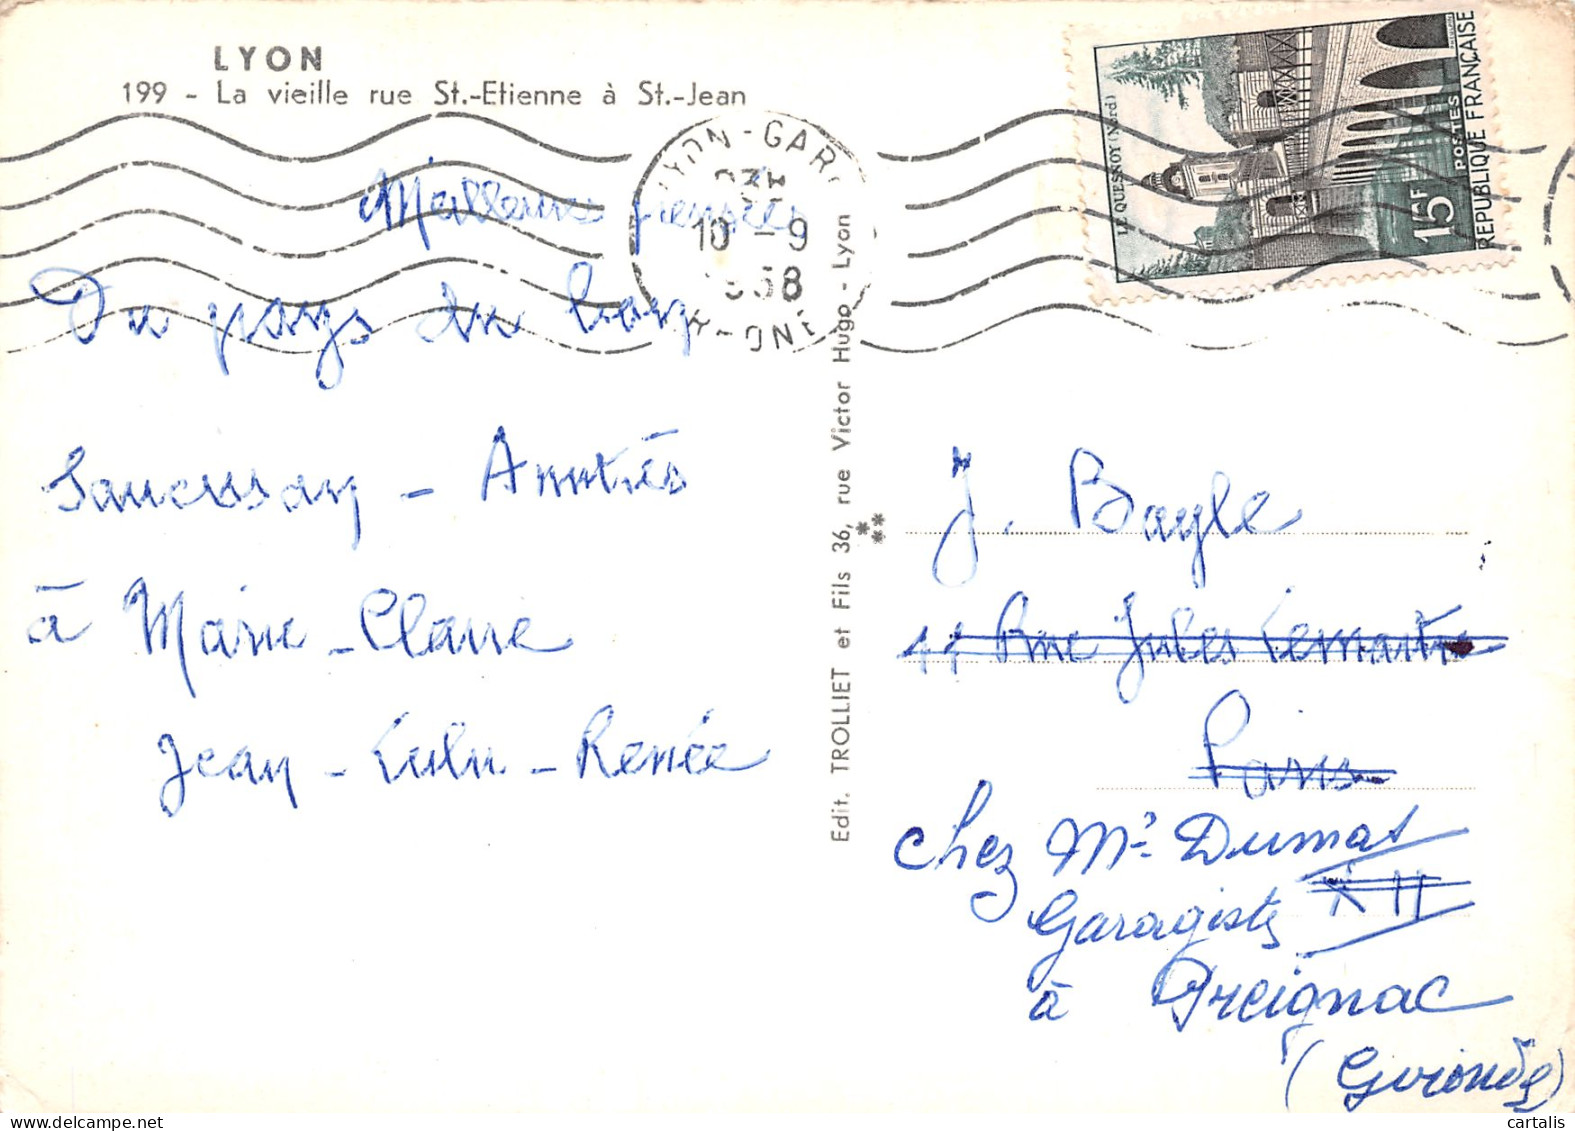 LYON
199 - La vieille rue St.-Etienne à St.-Jean
LYON-GARE
10 -9
1958
RHONE
LE QUESNOY (Nord)
15F
POSTES
REPUBLIQUE FRANÇAISE
Meilleures pensées
Du pays du bon
Saucusson - Amitiés
à Marie-Claire
Jean - Lulu - Renée
Edit. TROLLIET et Fils 36, rue Victor Hugo - Lyon
J. Bayle
11 Rue Jules Lemaitre
Paris
XII
chez Mr Dumas
Garagiste
à Preignac
(Gironde)
cartalis